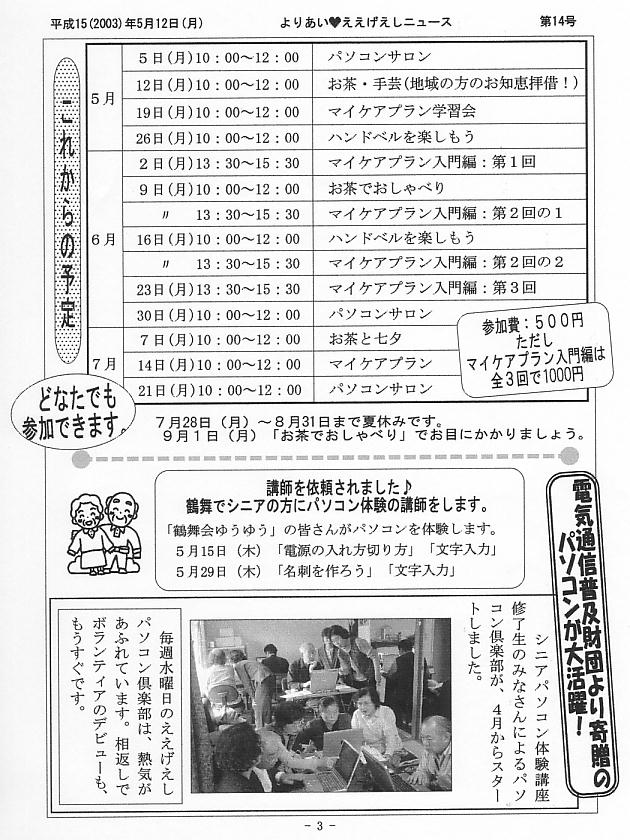 平成15(2003)年5月12日(月) よりあい♥ええげえしニュース 第14号
これからの予定
5月
5日(月)10:00～12:00 パソコンサロン
12日(月)10:00～12:00 お茶・手芸(地域の方のお知恵拝借！)
19日(月)10:00～12:00 マイケアプラン学習会
26日(月)10:00～12:00 ハンドベルを楽しもう
6月
2日(月)13:30～15:30 マイケアプラン入門編：第１回
9日(月)10:00～12:00 お茶でおしゃべり
〃 13:30～15:30 マイケアプラン入門編：第２回の１
16日(月)10:00～12:00 ハンドベルを楽しもう
〃 13:30～15:30 マイケアプラン入門編：第２回の２
23日(月)13:30～15:30 マイケアプラン入門編：第３回
30日(月)10:00～12:00 パソコンサロン
7月
7日(月)10:00～12:00 お茶と七夕
14日(月)10:00～12:00 マイケアプラン
21日(月)10:00～12:00 パソコンサロン
参加費：５００円
ただし
マイケアプラン入門編は
全３回で1000円
どなたでも
参加できます。
７月28日（月）～８月31日まで夏休みです。
９月１日（月）「お茶でおしゃべり」でお目にかかりましょう。
講師を依頼されました♪
鶴舞でシニアの方にパソコン体験の講師をします。
「鶴舞会ゆうゆう」の皆さんがパソコンを体験します。
５月15日（木）「電源の入れ方切り方」「文字入力」
５月29日（木）「名刺を作ろう」「文字入力」
電気通信普及財団より寄贈の
パソコンが大活躍！
シニアパソコン体験講座
修了生のみなさんによるパソ
コン倶楽部が、４月からスター
トしました。
毎週水曜日のええげえし
パソコン倶楽部は、熱気が
あふれています。相返しで
ボランティアのデビューも、
もうすぐです。
- 3 -